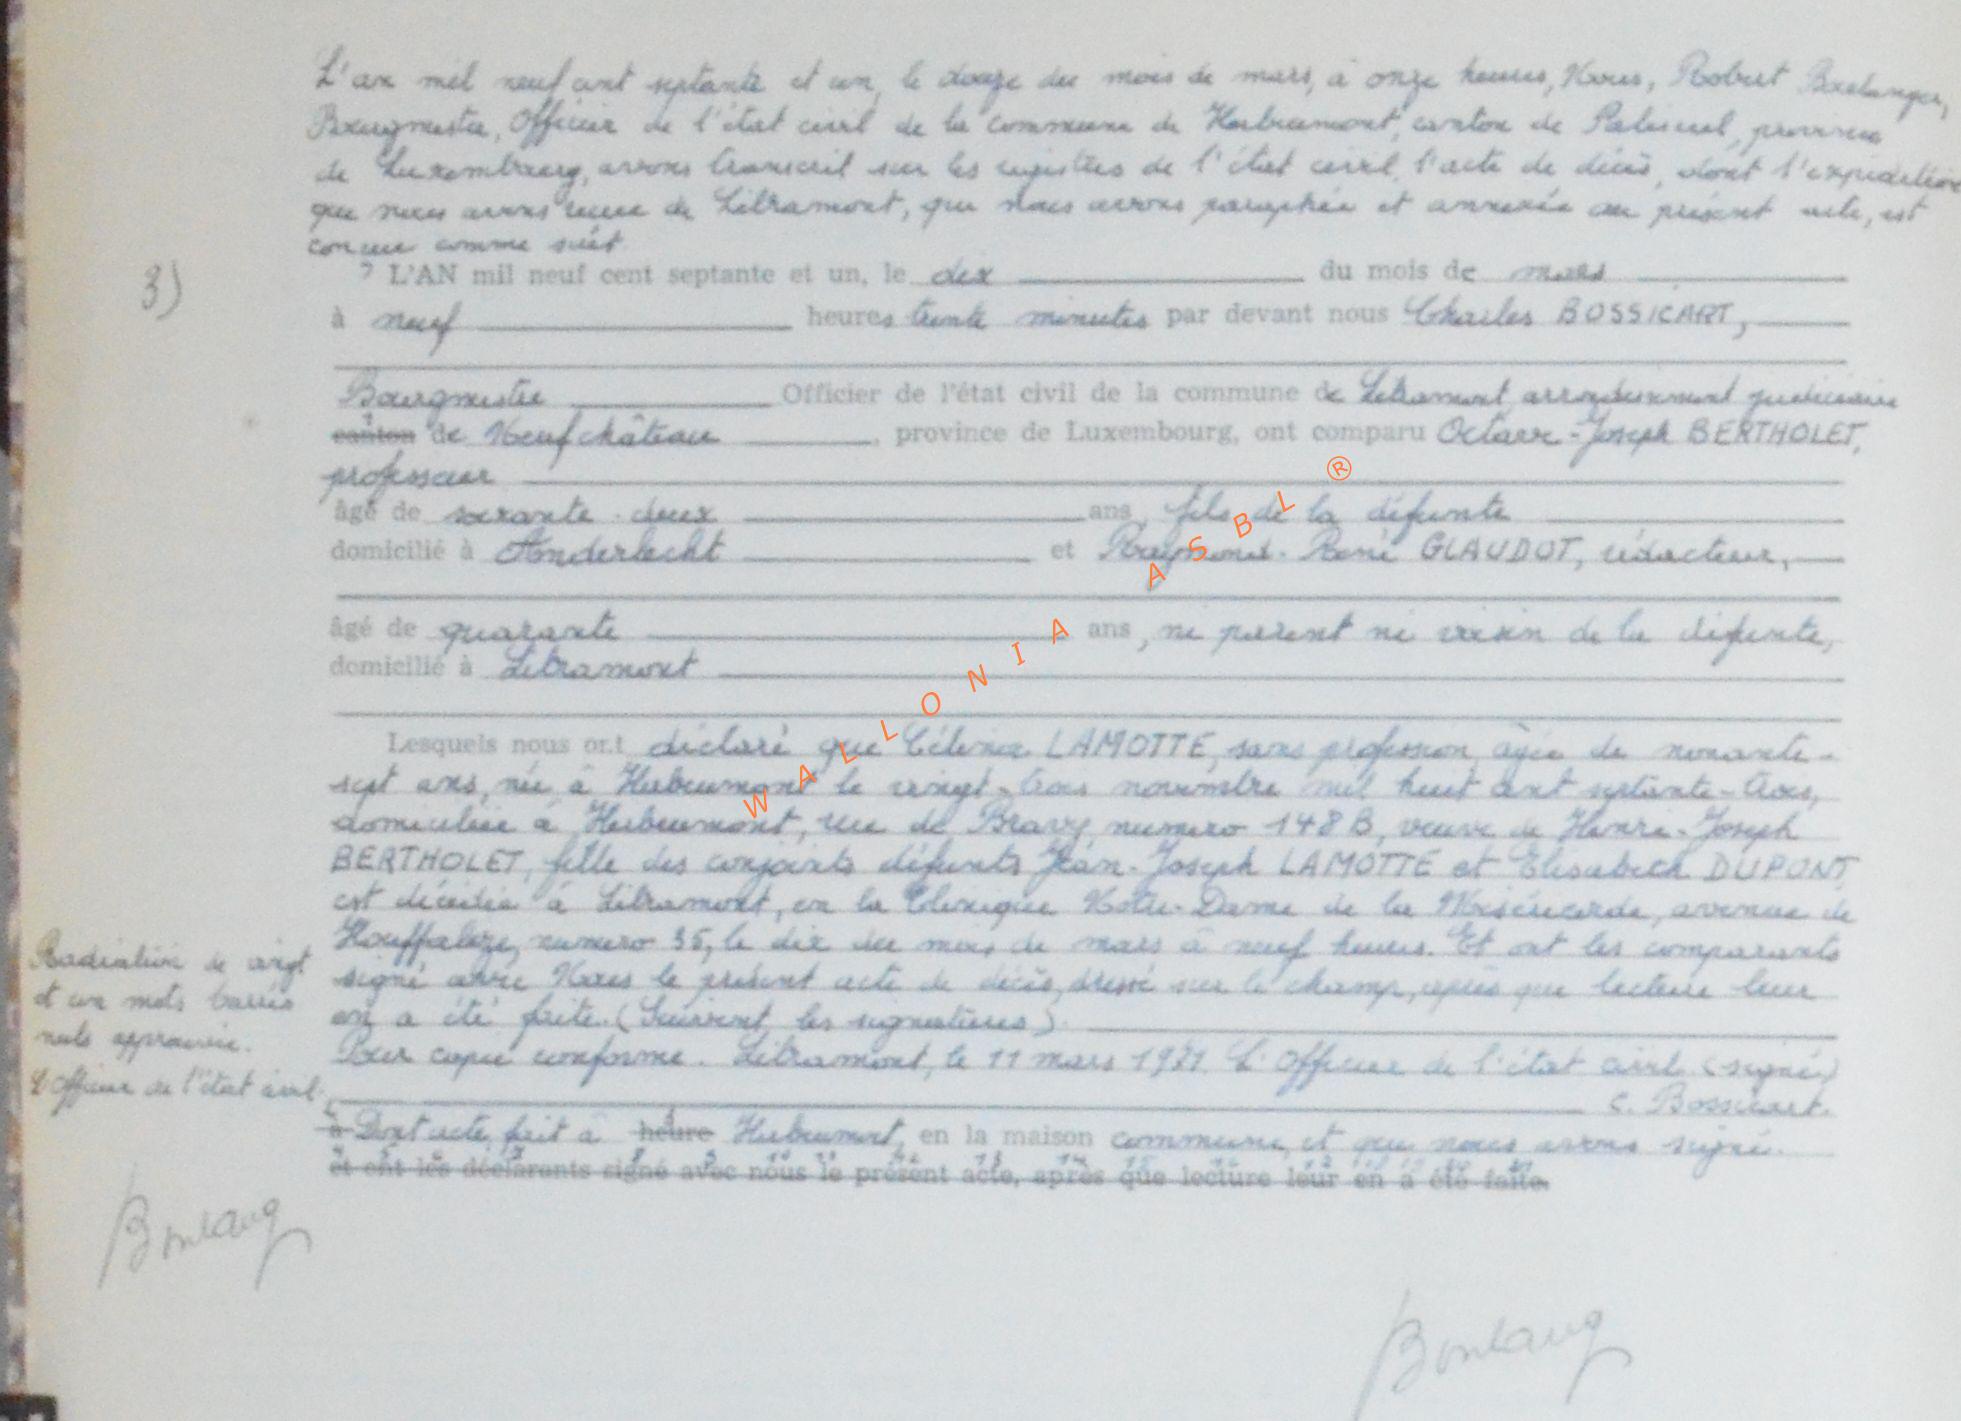 L'an mil neuf cent septante et un, le douze du mois de mars, à onze heures, Nous, Robert Boelanger,
Bourgmestre, Officier de l'état civil de la commune de Herbeumont, canton de Paliseul, province
de Luxembourg, avons transcrit sur les registres de l'état civil, l'acte de décès, dont l'expédition
que nous avons reçue de Libramont, que nous avons paraphée et annexée au présent acte, est
conçue comme suit
3) L'AN mil neuf cent septante et un, le dix du mois de mars
à neuf heures trente minutes par devant nous Charles BOSSICART,
Bourgmestre Officier de l'état civil de la commune de Libramont, arrondissement judiciaire
canton de Neufchâteau, province de Luxembourg, ont comparu Octave-Joseph BERTHOLET,
professeur
âgé de soixante-deux ans, fils de la défunte
domicilié à Anderlecht et Raymond-René GLAUDOT, rédacteur,
âgé de quarante ans, ni parent ni voisin de la défunte,
domicilié à Libramont
Lesquels nous ont déclaré que Célina LAMOTTE, sans profession, âgée de nonante-
sept ans, née à Herbeumont le vingt-trois novembre mil huit cent septante-trois,
domiciliée à Herbeumont, rue de Bravy, numéro 148B, veuve de Henri-Joseph
BERTHOLET, fille des conjoints défunts Jean-Joseph LAMOTTE et Elisabeth DUPONT,
est décédée à Libramont, en la Clinique Notre-Dame de la Miséricorde, avenue de
Houffalize, numéro 35, le dix du mois de mars à neuf heures. Et ont les comparants
signé avec Nous le présent acte de décès, dressé sur le champ, après que lecture leur
en a été faite. (Suivent les signatures).
Pour copie conforme. Libramont, le 11 mars 1971. L'Officier de l'état civil (signé)
C. Bossicart.
à Dont acte, fait à heure Herbeumont, en la maison commune, et que nous avons signé.
et ont les déclarants signé avec nous le présent acte, après que lecture leur en a été faite.
Radiation de vingt
et un mots barrés
nuls approuvée.
L'Officier de l'état civil.
WALLONIA ASBL ®